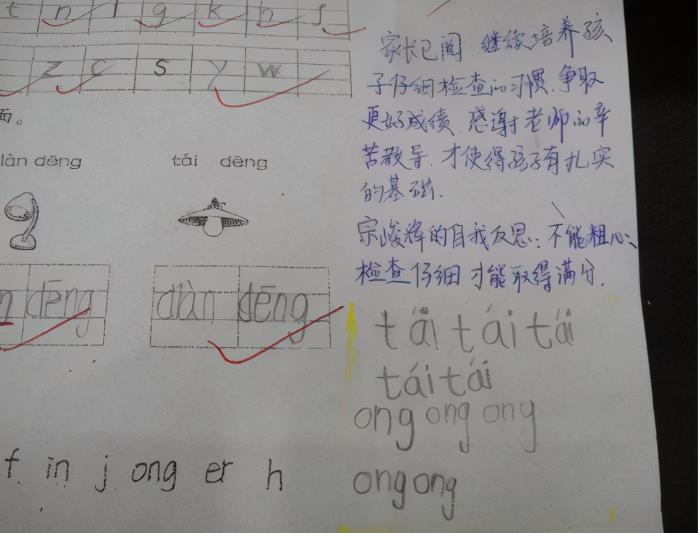 t n l g k h f
z c s y w
面。
làn dēng tái dēng
dēng diàn dēng
f in j ong er h
家长已阅 继续培养孩
子仔细检查的习惯,争取
更好成绩.感谢老师的辛
苦教导.才使得孩子有扎实
的基础.
宗峻辉的自我反思:不能粗心、
检查仔细才能取得满分.
tái tái tái
tái tái
ong ong ong
ong ong